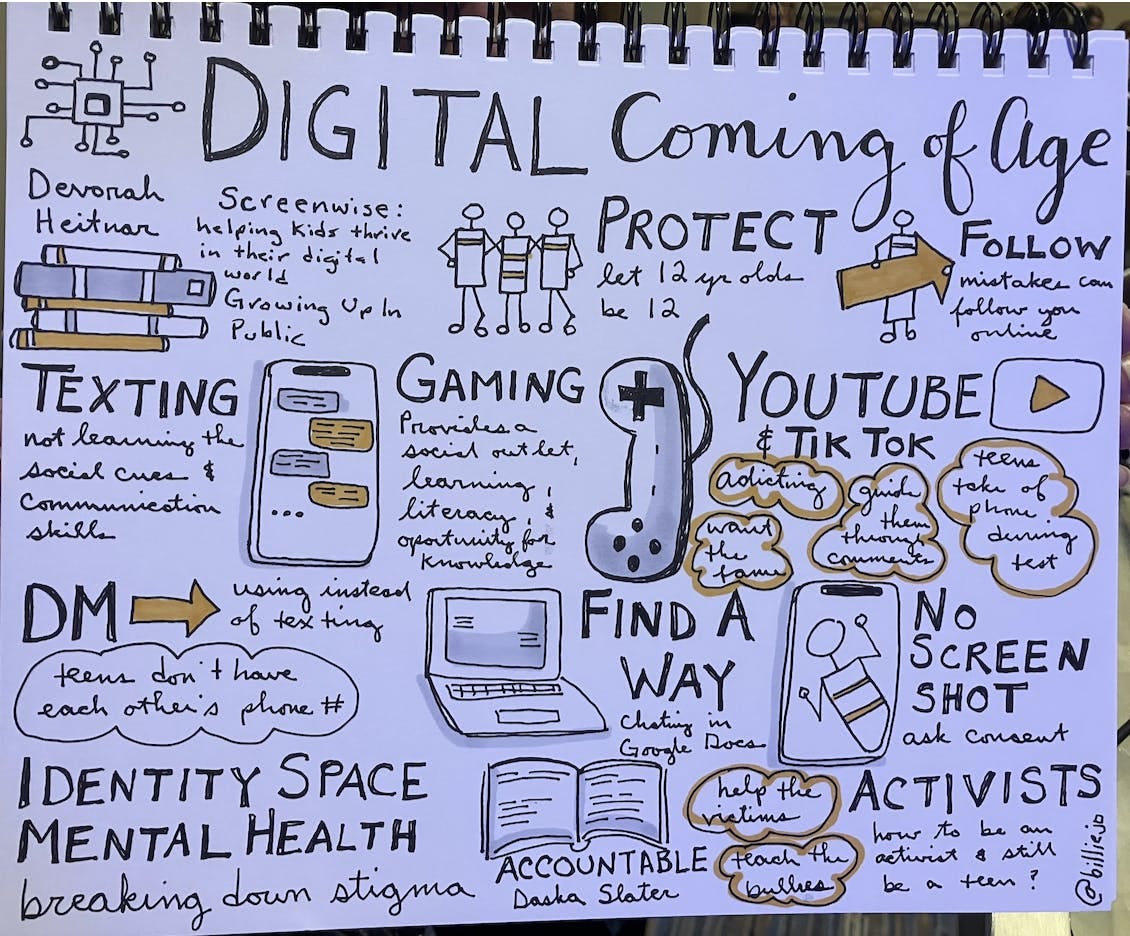 DIGITAL Coming of Age
Devorah
Heitnar
Screenwise:
helping kids thrive
in their digital
world
Growing Up In
Public
PROTECT
let 12 yr olds
be 12
FOLLOW
mistakes can
follow you
online
TEXTING
not learning the
social cues &
communication
skills
GAMING
Provides a
social outlet,
learning,
literacy, &
oportunity for
knowledge
YOUTUBE
& TIK TOK
adicting
want
the
fame
guide
them
through
comments
teens
take of
phone
during
test
DM
using instead
of texting
teens don't have
each other's phone #
FIND A
WAY
Chating in
Google Docs
NO
SCREEN
SHOT
ask consent
IDENTITY SPACE
MENTAL HEALTH
breaking down stigma
ACCOUNTABLE
Daska Slater
help the
victims
teach the
bullies
ACTIVISTS
how to be an
activist & still
be a teen?
@billiejo